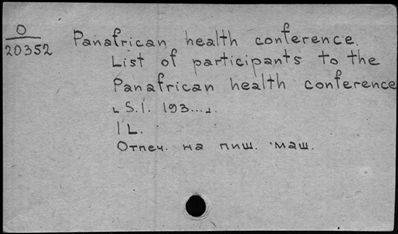 O
20352
Panafrican health conference.
List of participants to the
Panafrican health conference
[S.l. 193...].
1 L.
Отпеч. на пиш. маш.